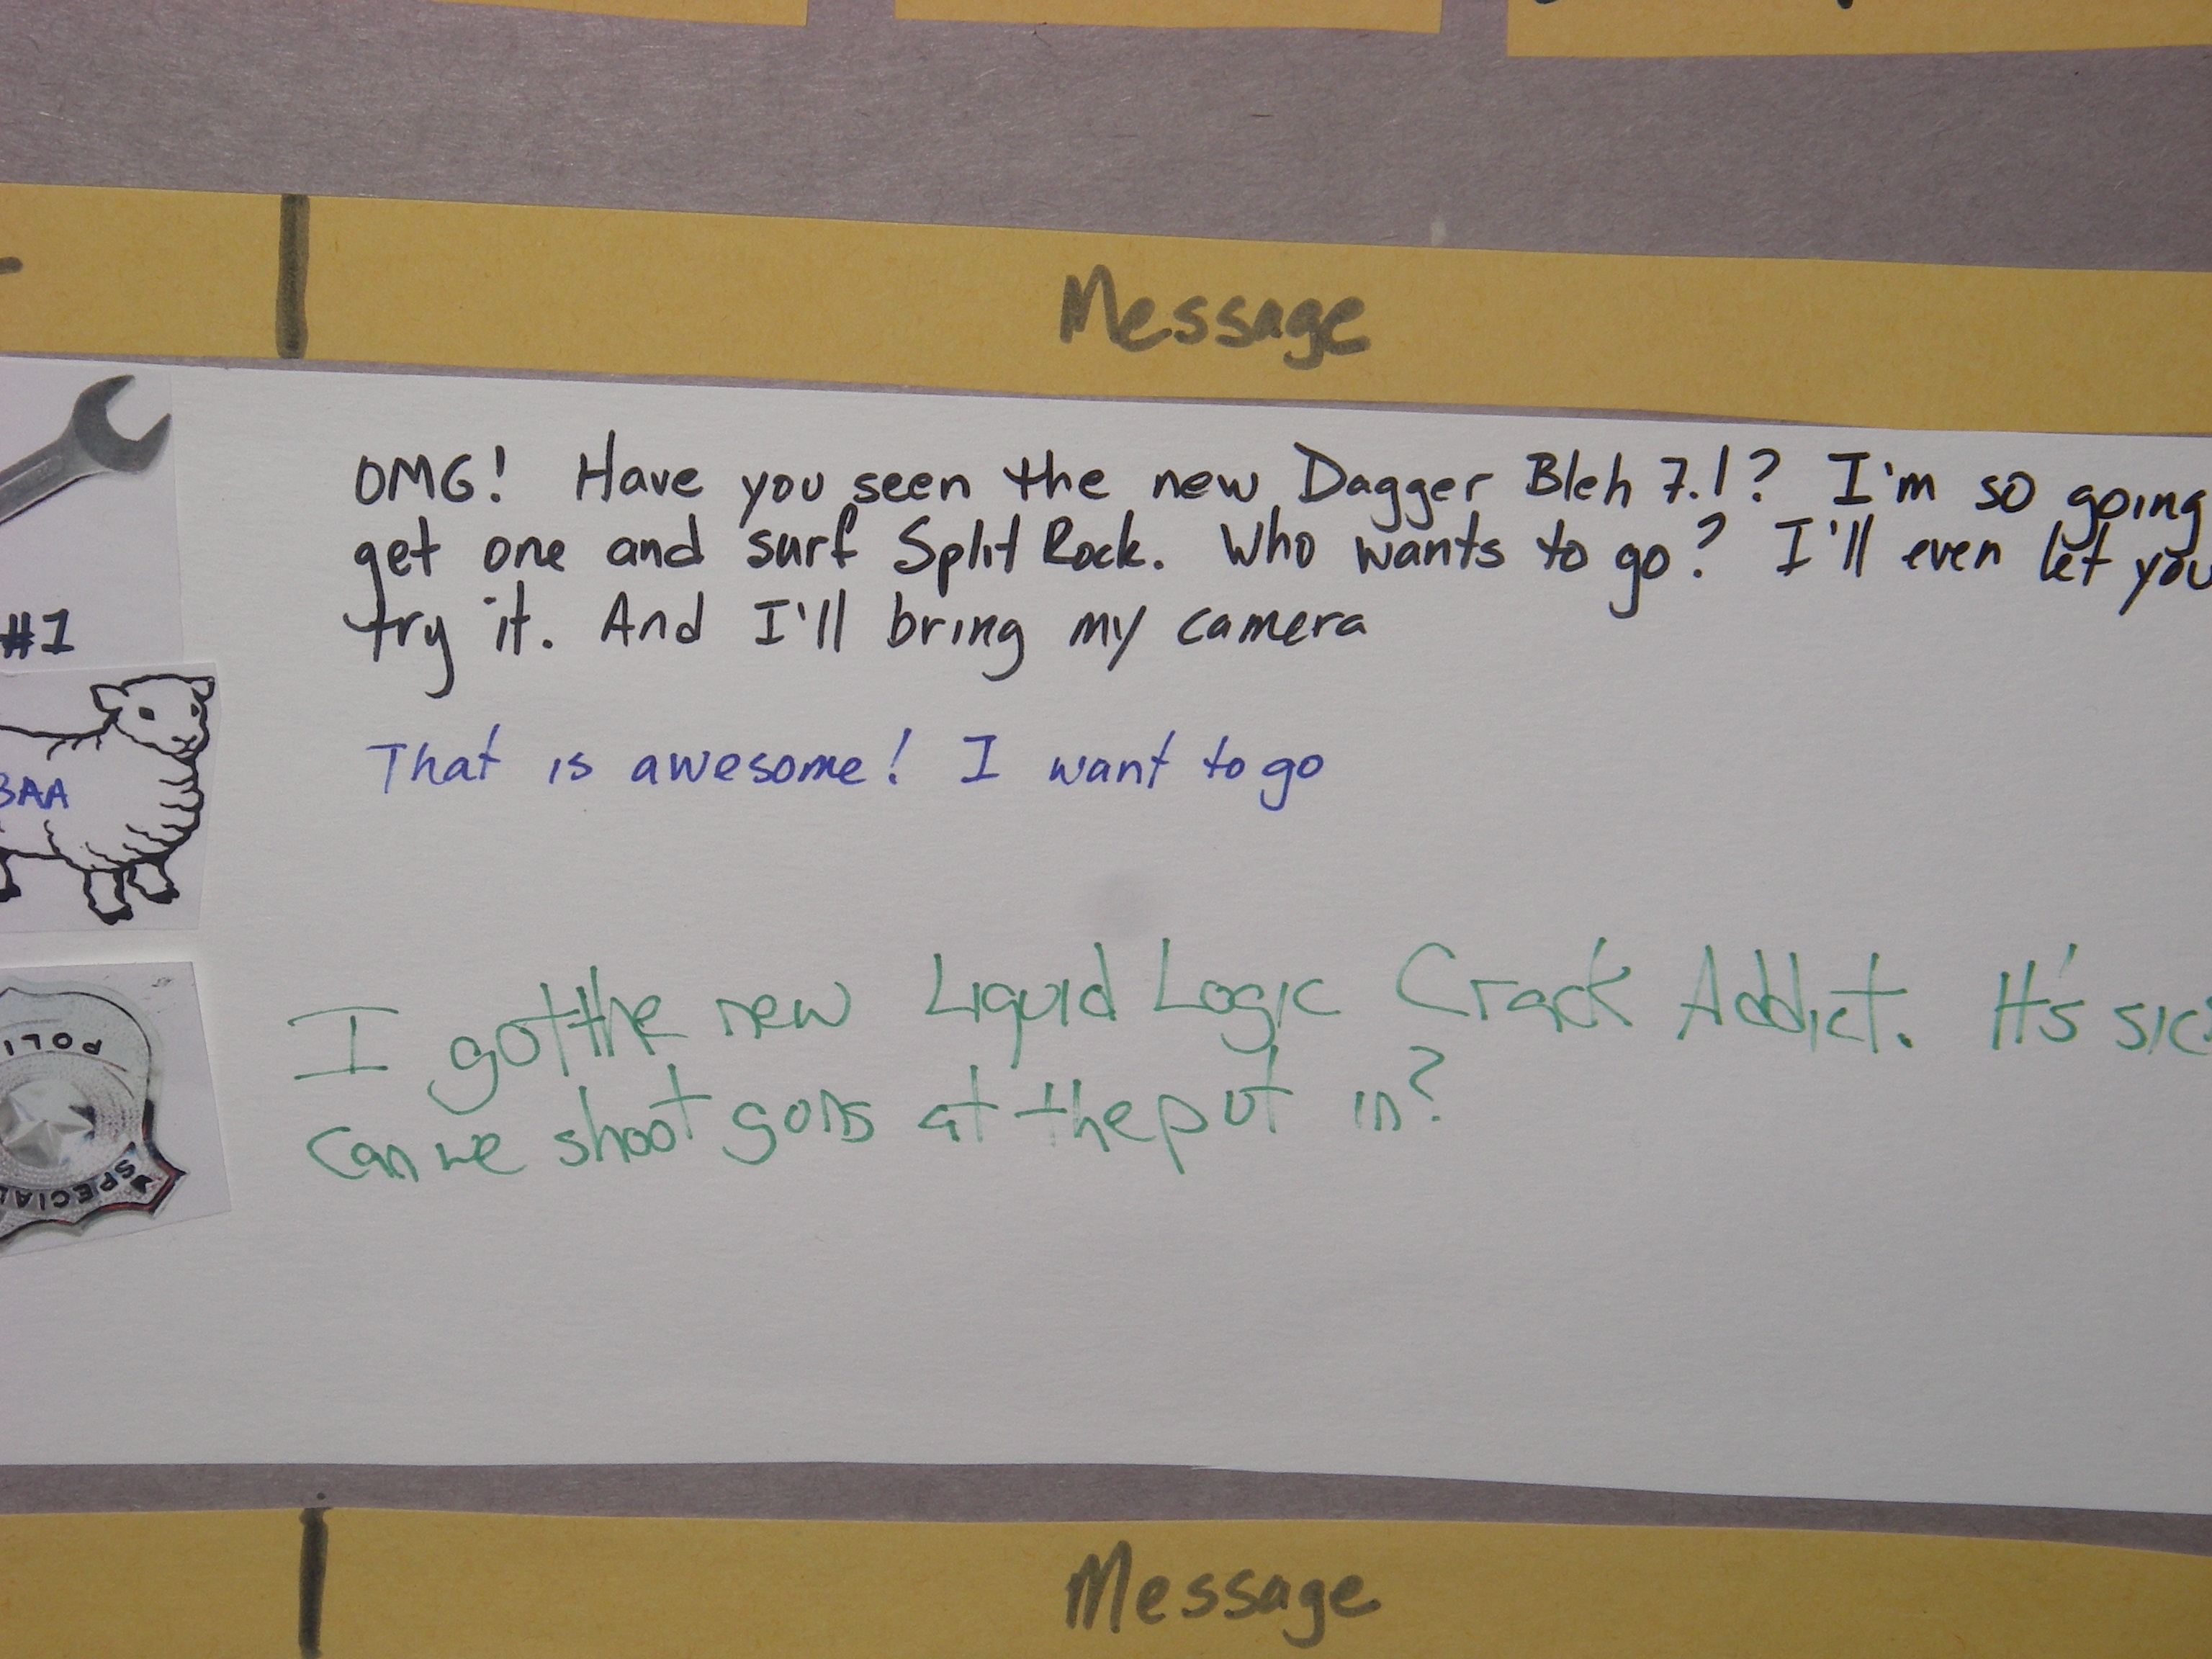 Message
OMG! Have you seen the new Dagger Bleh 7.1? I'm so going
get one and surf Split Rock. Who wants to go? I'll even let you
try it. And I'll bring my camera
#1
That is awesome! I want to go
BAA
I got the new Liquid Logic Crack Addict. It's sic
Can we shoot guns at the put in?
POLI
SPECIAL
Message